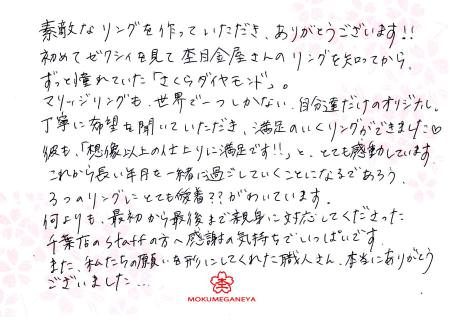 素敵なリングを作っていただき、ありがとうございます!!
初めてゼクシィを見て杢目金屋さんのリングを知ってから、
ずっと憧れていた「さくらダイヤモンド」。
マリッジリングも、世界で一つしかない、自分達だけのオリジナル。
丁寧に希望を聞いていただき、満足のいくリングができました♡
彼も、「想像以上の仕上りに満足です!!」と、とても感動しています。
これから長い年月を一緒に過ごしていくことになるであろう、
3つのリングにとても愛着??がわいています。
何よりも、最初から最後まで親身に対応してくださった
千葉店のstaffの方へ感謝の気持ちでいっぱいです。
また、私たちの願いを形にしてくれた職人さん、本当にありがとう
ございました...
杢
MOKUMEGANEYA